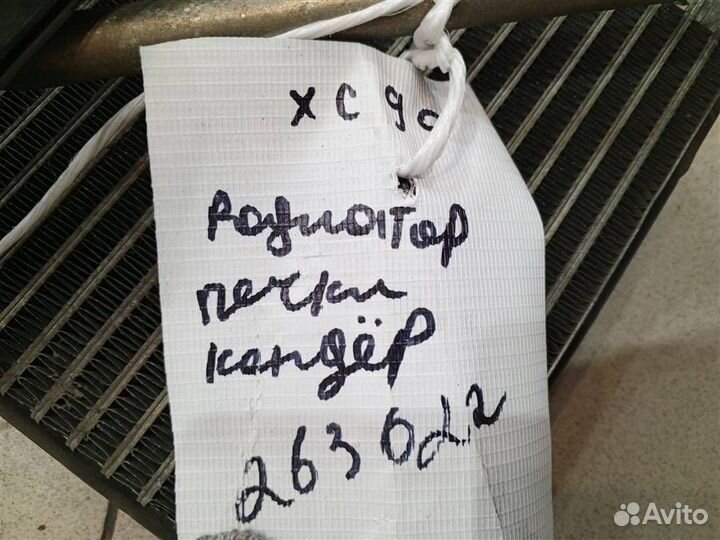 XC90
Радиатор
печки
кондёр
263022
Avito